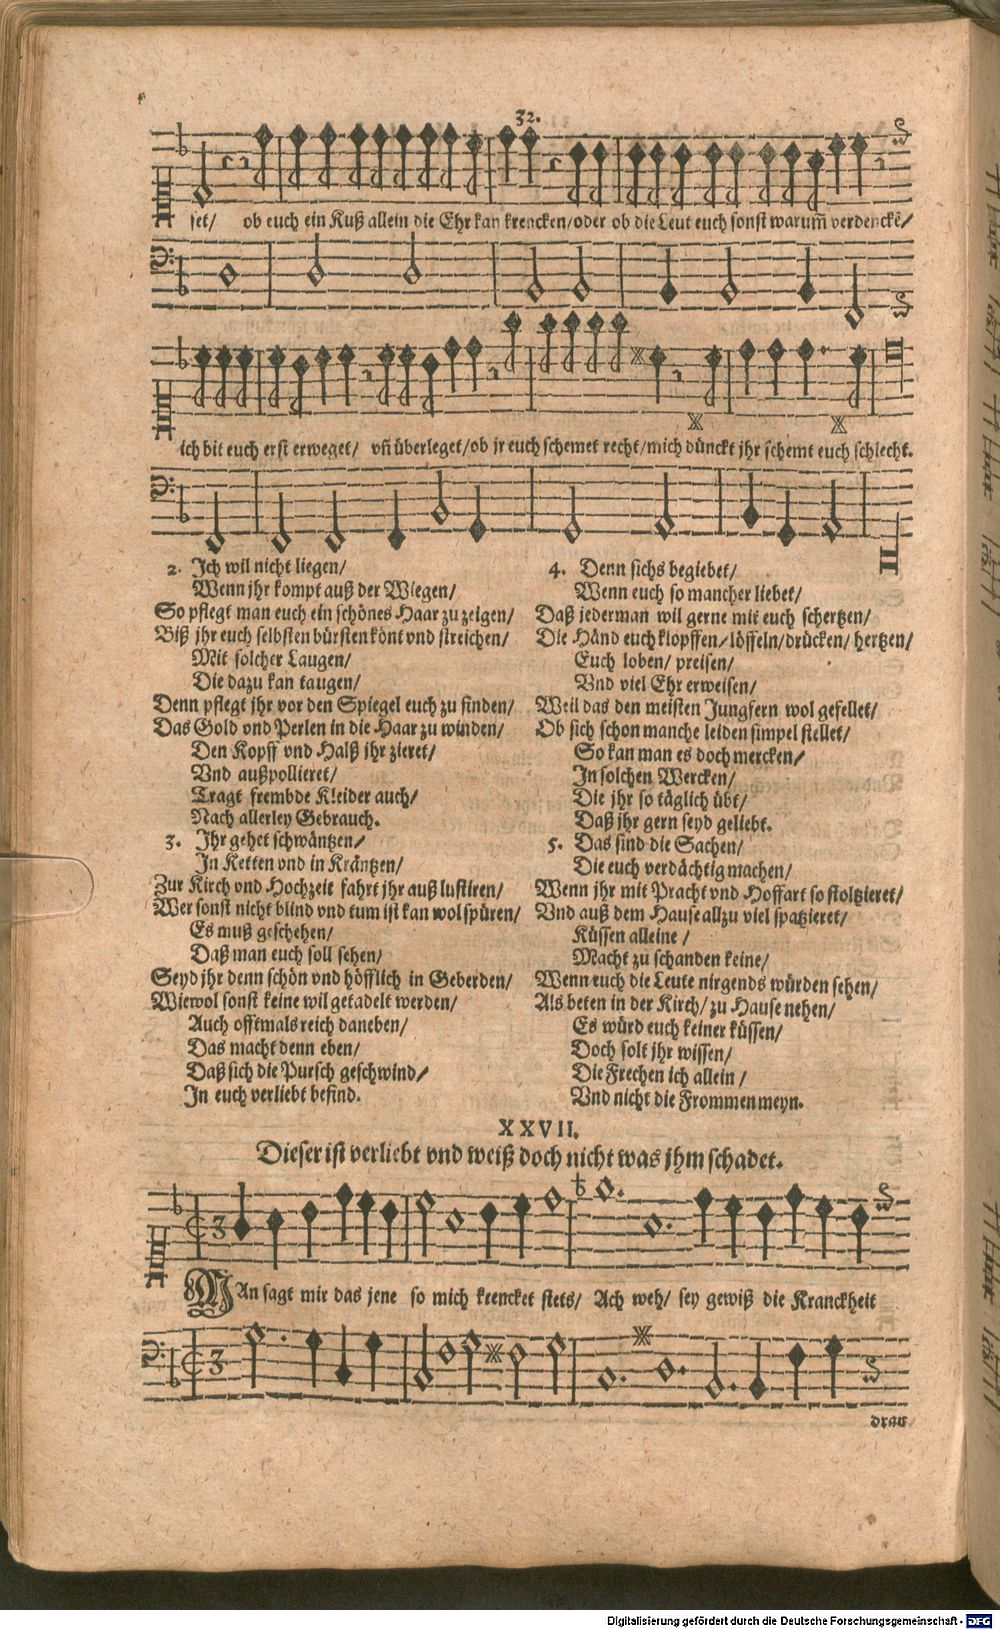 32.
set/ ob euch ein Kuß allein die Ehr kan krencken/oder ob die Leut euch sonst warum̃ verdenckẽ/
ich bit euch erst erweget/ vñ überleget/ob jr euch schemet recht/mich dünckt jhr schemt euch schlecht.
2. Ich wil nicht liegen/
Wenn jhr kompt auß der Wiegen/
So pflegt man euch ein schönes Haar zu zeigen/
Biß jhr euch selbsten bürsten könt vnd streichen/
Mit solcher Laugen/
Die dazu kan taugen/
Denn pflegt jhr vor den Spiegel euch zu finden/
Das Gold vnd Perlen in die Haar zu winden/
Den Kopff vnd Halß jhr zieret/
Vnd außpollieret/
Tragt frembde Kleider auch/
Nach allerley Gebrauch.
3. Ihr gehet schwäntzen/
In Ketten vnd in Kräntzen/
Zur Kirch vnd Hochzeit fahrt jhr auß lustiren/
Wer sonst nicht blind vnd tum ist kan wol spüren/
Es muß geschehen/
Daß man euch soll sehen/
Seyd jhr denn schön vnd höfflich in Geberden/
Wiewol sonst keine wil getadelt werden/
Auch offtmals reich daneben/
Das macht denn eben/
Daß sich die Pursch geschwind/
In euch verliebt befind.
4. Denn sichs begiebet/
Wenn euch so mancher liebet/
Daß jederman wil gerne mit euch schertzen/
Die Händ euch klopffen/löffeln/drücken/hertzen/
Euch loben/ preisen/
Vnd viel Ehr erweisen/
Weil das den meisten Jungfern wol gefellet/
Ob sich schon manche leiden simpel stellet/
So kan man es doch mercken/
In solchen Wercken/
Die jhr so täglich übt/
Daß jhr gern seyd geliebt.
5. Das sind die Sachen/
Die euch verdächtig machen/
Wenn jhr mit Pracht vnd Hoffart so stoltzieret/
Vnd auß dem Hause allzu viel spatzieret/
Küssen alleine/
Macht zu schanden keine/
Wenn euch die Leute nirgends würden sehen/
Als beten in der Kirch/ zu Hause nehen/
Es würd euch keiner küssen/
Doch solt jhr wissen/
Die Frechen ich allein/
Vnd nicht die Frommen meyn.
XXVII.
Dieser ist verliebt vnd weiß doch nicht was jhm schadet.
MAn sagt mir das jene so mich krencket stets/ Ach weh/ sey gewiß die Kranckheit
drau
Digitalisierung gefördert durch die Deutsche Forschungsgemeinschaft - DFG